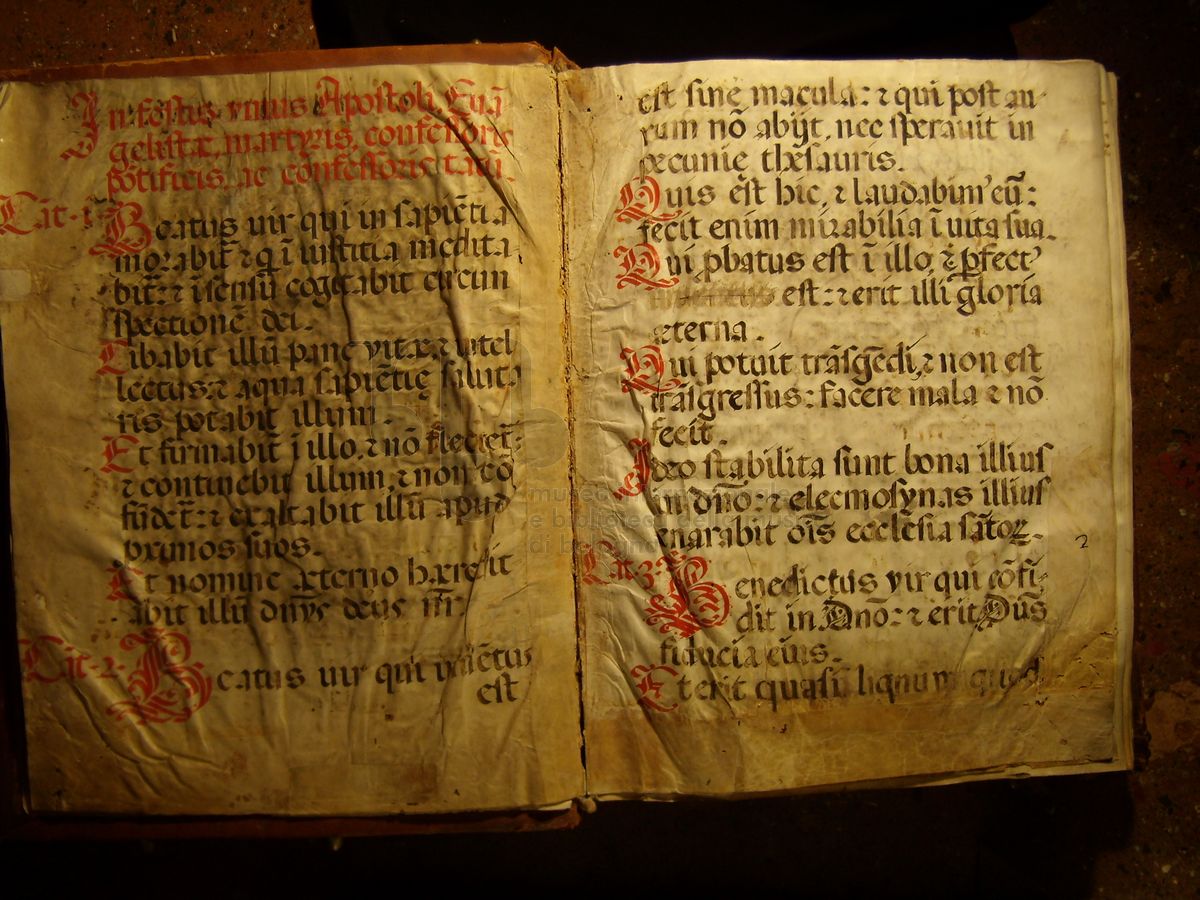 In festus vnius Apostoli, Euā
gelistæ, martyris, confessoris
pōtificis, ac cōnfessoris tātū.
Cāt. 1. Beatus uir qui in sapiētia
morabit̄ ⁊ q̄ ī iustitia medita
bit̄: ⁊ ī sensū cogitabit circum
spectionē dei.
Cibabit illū pane vitæ ⁊ ītel
lectus: ⁊ aqua sapiētię saluta
ris potabit illum.
Et firmabit̄ ī illo, ⁊ nō flectet̄:
⁊ continebit illum, ⁊ non cō
fūdet̄: ⁊ exaltabit illū apud
proximos suos.
Et nomine æterno hæredit
abit illū dn̄s deus nr̄.
Cāt. 2. Beatus uir qui inuētus
est
est sine macula: ⁊ qui post au
rum nō abijt, nec sperauit in
pecunie thesauris.
Quis est hic, ⁊ laudabim' eū:
fecit enim mirabilia ī uita sua.
Qui ꝓbatus est ī illo, ⁊ ꝑfect'
est: ⁊ erit illi gloria
æterna.
Qui potuit trāsgēdi, ⁊ non est
trāsgressus: facere mala ⁊ nō
fecit.
Ideo stabilita sunt bona illius
in dn̄o: ⁊ elecmosynas illius
enarabit oīs ecclesia sātoꝝ.
2
Cāt. 3. Benedictus vir qui cōfi-
dit in Dn̄o: ⁊ erit Dn̄s
fiducia eius.
Et erit quasi lignum quod
museo
e biblioteca della
di bologna